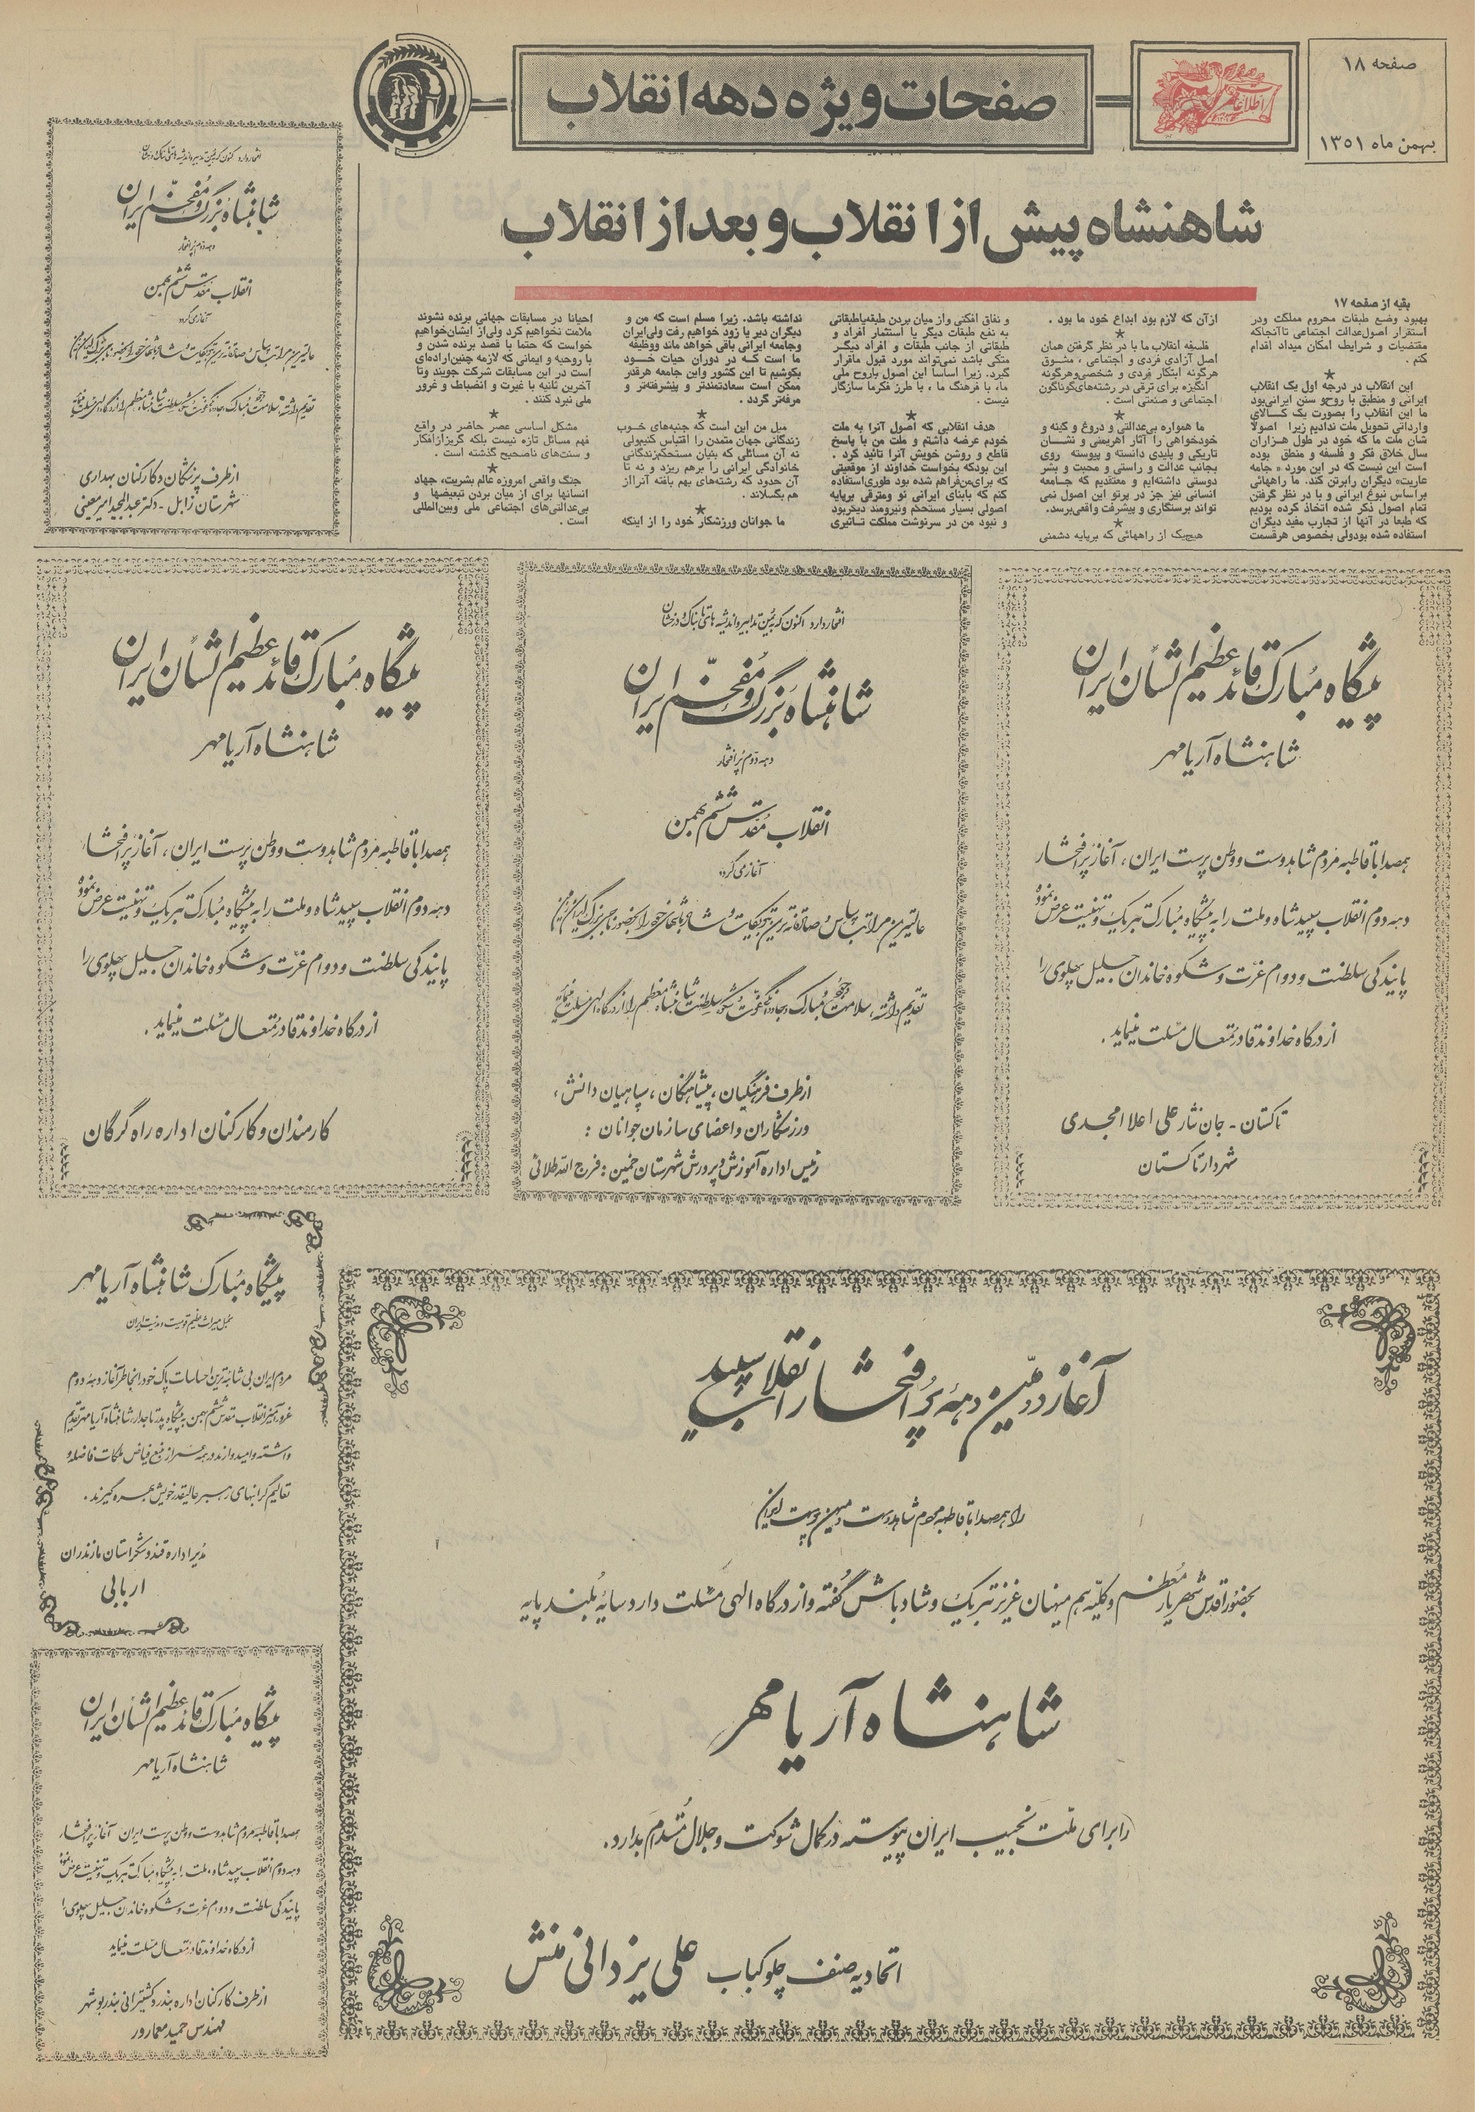 صفحه ۱۸
بهمن ماه ۱۳۵۱
اطلاعات
صفحات ویژه دهه انقلاب
شاهنشاه پیش از انقلاب و بعد از انقلاب
بقیه از صفحه ۱۷
بهبود وضع طبقات محروم مملکت ودر
استقرار اصول‌عدالت اجتماعی تاآنجاکه
مقتضیات و شرایط امکان میداد اقدام
کنم .
★
این انقلاب در درجه اول یک انقلاب
ایرانی و منطبق با روح‌و سنن ایرانی‌بود
ما این انقلاب را بصورت یک کالای
وارداتی تحویل ملت ندادیم زیرا اصولا
شان ملت ما که خود در طول هزاران
سال خلاق فکر و فلسفه و منطق بوده
است این نیست که در این مورد « جامه
عاریت» دیگران رابرتن کند. ما راههائی
براساس نبوغ ایرانی و با در نظر گرفتن
تمام اصول ذکر شده اتخاذ کرده بودیم
که طبعا در آنها از تجارب مفید دیگران
استفاده شده بودولی بخصوص هرقسمت
ازآن که لازم بود ابداع خود ما بود .
★
فلسفه انقلاب ما با در نظر گرفتن همان
اصل آزادی فردی و اجتماعی ، مشوق
هرگونه ابتکار فردی و شخصی‌وهرگونه
انگیزه برای ترقی در رشته‌های‌گوناگون
اجتماعی و صنعتی است .
★
ما همواره بی‌عدالتی و دروغ و کینه و
خودخواهی را آثار اهریمنی و نشان
تاریکی و پلیدی دانسته و پیوسته روی
بجانب عدالت و راستی و محبت و بشر
دوستی داشته‌ایم و معتقدیم که جامعه
انسانی نیز جز در پرتو این اصول نمی
تواند برستگاری و پیشرفت واقعی‌برسد.
★
هیچ‌یک از راههائی که برپایه دشمنی
و نفاق افکنی واز میان بردن طبقه‌یاطبقاتی
به نفع طبقات دیگر یا استثمار افراد و
طبقاتی از جانب طبقات و افراد دیگر
متکی باشد نمی‌تواند مورد قبول ماقرار
گیرد. زیرا اساسا این اصول باروح ملی
ما، با فرهنگ ما ، با طرز فکرما سازگار
نیست .
★
هدف انقلابی که اصول آنرا به ملت
خودم عرضه داشتم و ملت من با پاسخ
قاطع و روشن خویش آنرا تائید کرد .
این بودکه بخواست خداوند از موقعیتی
که برای‌من‌فراهم شده بود طوری‌استفاده
کنم که بابنای ایرانی نو ومترقی برپایه
اصولی بسیار مستحکم ونیرومند دیگربود
و نبود من در سرنوشت مملکت تاثیری
نداشته باشد. زیرا مسلم است که من و
دیگران دیر یا زود خواهیم رفت ولی‌ایران
وجامعه ایرانی باقی خواهد ماند ووظیفه
ما است که در دوران حیات خود
بکوشیم تا این کشور واین جامعه هرقدر
ممکن است سعادتمندتر و پیشرفته‌تر و
مرفه‌تر گردد .
★
میل من این است که جنبه‌های خوب
زندگانی جهان متمدن را اقتباس کنیم‌ولی
نه آن مسائلی که بنیان مستحکم‌زندگانی
خانوادگی ایرانی را برهم ریزد و نه تا
آن حدود که رشته‌های بهم بافته آنرااز
هم بگسلاند .
★
ما جوانان ورزشکار خود را از اینکه
احیانا در مسابقات جهانی برنده نشوند
ملامت نخواهیم کرد ولی‌از ایشان‌خواهیم
خواست که حتما با قصد برنده شدن و
با روحیه و ایمانی که لازمه چنین‌اراده‌ای
است در این مسابقات شرکت جویند وتا
آخرین ثانیه با غیرت و انضباط و غرور
ملی نبرد کنند .
★
مشکل اساسی عصر حاضر در واقع
فهم مسائل تازه نیست بلکه گریزازافکار
و سنت‌های ناصحیح گذشته است .
★
جنگ واقعی امروزه عالم بشریت، جهاد
انسانها برای از میان بردن تبعیضها و
بی‌عدالتی‌های اجتماعی ملی وبین‌المللی
است .
افتخار دارد اکنون که به یمن تدابیر و اندیشه های تابناک و درخشان
شاهنشاه بزرگ و مفخّم ایران
دهه دوم پر افتخار
انقلاب مقدس ششم بهمن
آغاز می گردد
عالیترین مراتب سپاس و صادقانه ترین تبریکات و شادباشهای خود را بحضور رهبر بزرگ ایران
تقدیم داشته، سلامت وجود مبارک و جاودانگی عزت و شکوه سلطنت شاهنشاه معظم را از درگاه الهی مسئلت مینماید
ازطرف پزشکان و کارکنان بهداری
شهرستان زابل - دکتر عبدالمجید امیرمعینی
پیشگاه مبارک قائد عظیم الشأن ایران
شاهنشاه آریامهر
همصدا با قاطبه مردم شاهدوست و وطن پرست ایران ، آغاز پر افتخار
دهه دوم انقلاب سپید شاه و ملت را به پیشگاه مبارک تبریک و تهنیت عرض نموده
پایندگی سلطنت و دوام عزت و شکوه خاندان جلیل پهلوی را
از درگاه خداوند قادر متعال مسئلت مینماید .
تاکستان - جان نثار علی اعلا امجدی
شهردار تاکستان
افتخار دارد اکنون که به یمن تدابیر و اندیشه های تابناک و درخشان
شاهنشاه بزرگ و مفخّم ایران
دهه دوم پر افتخار
انقلاب مقدس ششم بهمن
آغاز می گردد
عالیترین مراتب سپاس و صادقانه ترین تبریکات و شادباشهای خود را بحضور رهبر بزرگ ایران
تقدیم داشته، سلامت وجود مبارک و جاودانگی عزت و شکوه سلطنت شاهنشاه معظم را از درگاه الهی مسئلت مینماید
ازطرف فرهنگیان ، پیشاهنگان ، سپاهیان دانش ،
ورزشکاران و اعضای سازمان جوانان :
رئیس اداره آموزش و پرورش شهرستان خمین : فرج الله طلائی
پیشگاه مبارک قائد عظیم الشأن ایران
شاهنشاه آریامهر
همصدا با قاطبه مردم شاهدوست و وطن پرست ایران ، آغاز پر افتخار
دهه دوم انقلاب سپید شاه و ملت را به پیشگاه مبارک تبریک و تهنیت عرض نموده
پایندگی سلطنت و دوام عزت و شکوه خاندان جلیل پهلوی را
از درگاه خداوند قادر متعال مسئلت مینماید .
کارمندان و کارکنان اداره راه گرگان
پیشگاه مبارک شاهنشاه آریامهر
میراث عظیم قومیت و مدنیت ایران
مردم ایران بی شائبه ترین احساسات پاک خود را بخاطر آغاز دهه دوم
غرور آمیز انقلاب مقدس ششم بهمن به پیشگاه پدر تاجدار، شاهنشاه آریامهر تقدیم
داشته و امیدوارند در همه عمر از منبع فیاض ملکات فاضله و
تعالیم گرانبهای رهبر عالیقدر خویش بهره گیرند .
مدیر اداره قند و شکر استان مازندران
اربابی
آغاز دومّین دهه پر افتخار انقلاب سپید
را همصدا با قاطبه مردم شاهدوست و میهن پرست ایران
بحضور اقدس شهریار معظم و کلیه هم میهنان عزیز تبریک و شادباش گفته و از درگاه الهی مسئلت دارد سایه بلند پایه
شاهنشاه آریامهر
را برای ملت نجیب ایران پیوسته در کمال شوکت و جلال مستدام بدارد .
اتحادیه صنف چلوکباب علی یزدانی منش
پیشگاه مبارک قائد عظیم الشأن ایران
شاهنشاه آریامهر
همصدا با قاطبه مردم شاهدوست و وطن پرست ایران آغاز پر افتخار
دهه دوم انقلاب سپید شاه و ملت را به پیشگاه مبارک تبریک و تهنیت عرض نموده
پایندگی سلطنت و دوام عزت و شکوه خاندان جلیل پهلوی را
از درگاه خداوند قادر متعال مسئلت مینماید
ازطرف کارکنان اداره بندر و کشتیرانی بندر بوشهر
مهندس حمید معمارور